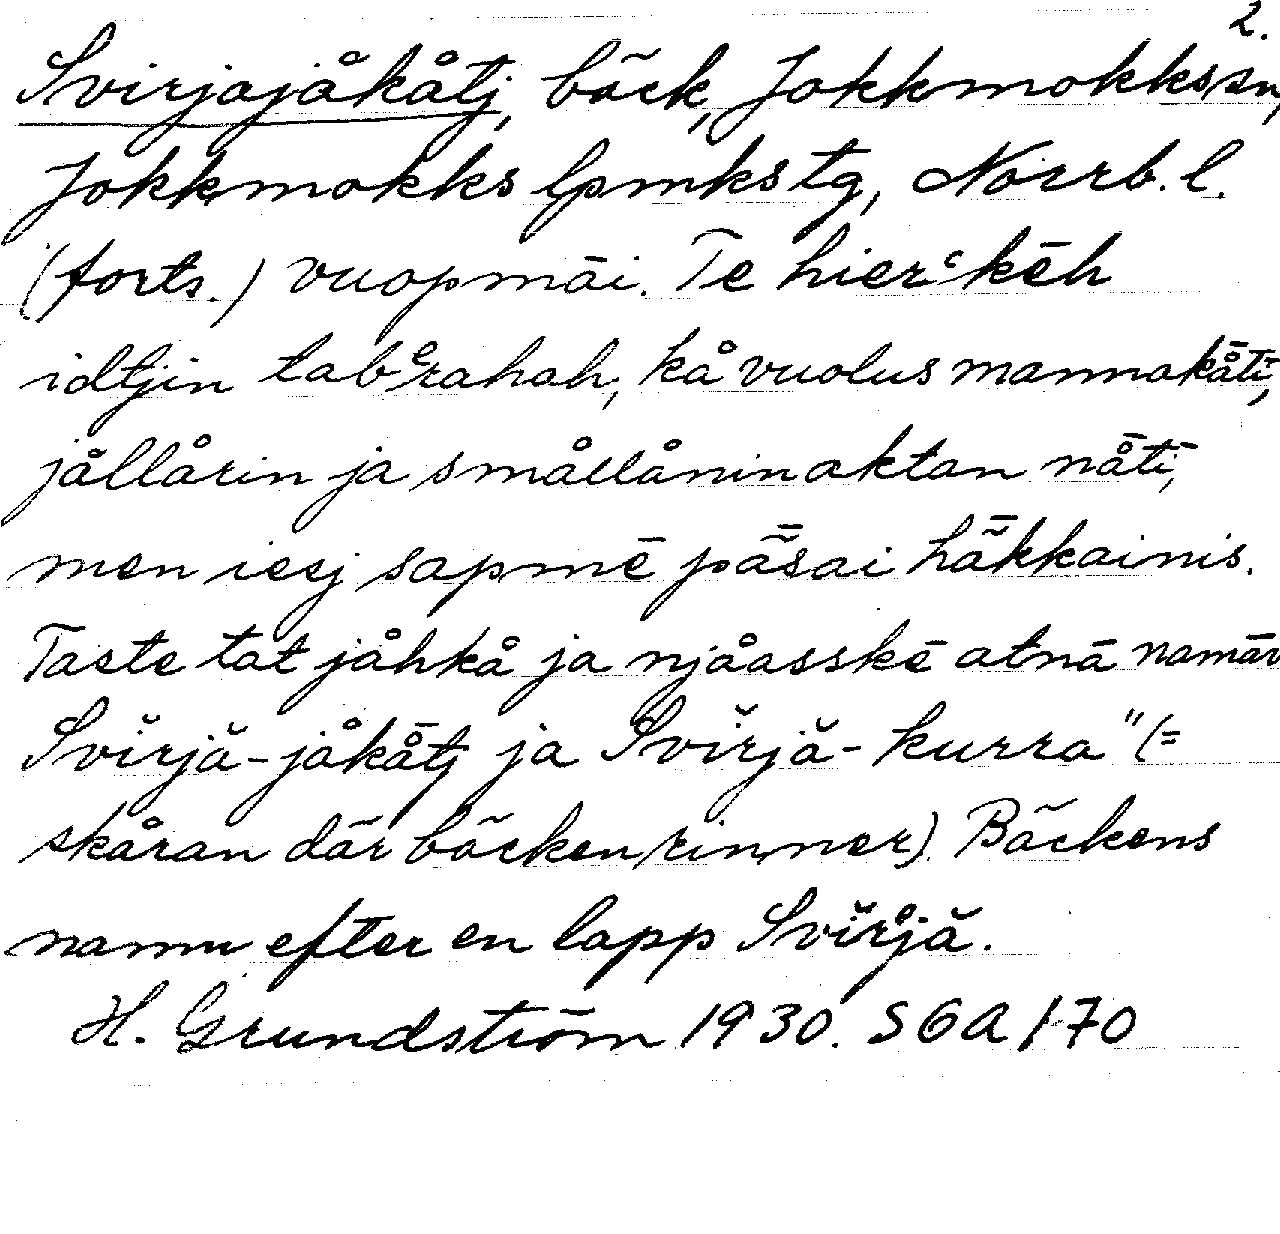 2.
Svirjajåkåtj, bäck, Jokkmokks sn,
Jokkmokks lpmkstg, Norrb. l.
(forts.) vuopmāi. Te hierᶜkēh
idtjin tabᵉrahah, kå vuolus mannakå̄tī,
jållårin ja smållånin aktan nå̄tī,
men iesj sapmē pǟsai hǟkkainis.
Taste tat jåhkå ja njåasskē atnā namāv
Svĭrjă-jåkå̄tj ja Svĭrjă-kurra" (=
skåran där bäcken rinner). Bäckens
namn efter en lapp Svĭrjă.
H. Grundström 1930. SGA 1-70